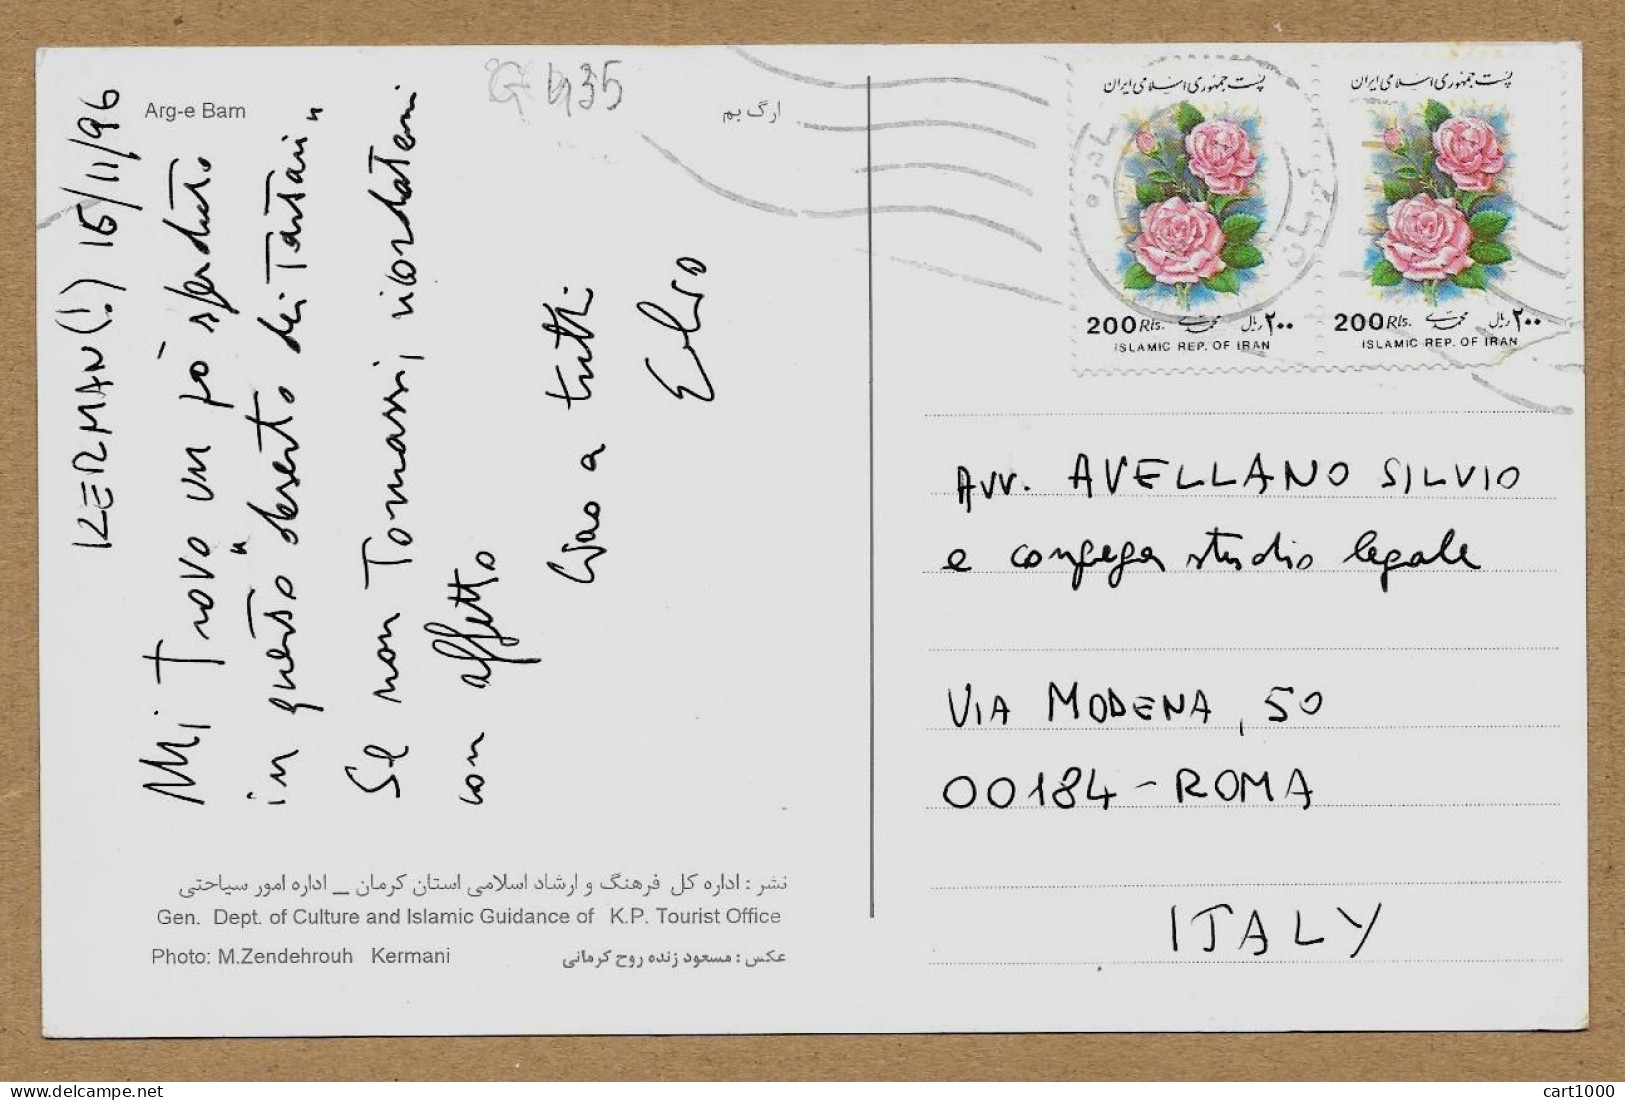 Arg-e Bam
ارگ بم
KERMAN (!) 15/11/96
Mi trovo un pò sperduto
in questo "deserto dei Tartari"
Se non Tornassi, ricordatemi
con affetto
Ciao a tutti
نشر : اداره کل فرهنگ و ارشاد اسلامی استان کرمان _ اداره امور سیاحتی
Gen. Dept. of Culture and Islamic Guidance of K.P. Tourist Office
Photo: M.Zendehrouh Kermani
عکس : مسعود زنده روح کرمانی
435
پست جمهوری اسلامی ایران
200 Rls. ۲۰۰ ریال
ISLAMIC REP. OF IRAN
پست جمهوری اسلامی ایران
200 Rls. ۲۰۰ ریال
ISLAMIC REP. OF IRAN
Avv. AVELLANO SILVIO
e studio legale
VIA MODENA, 50
00184 - ROMA
ITALY
cart1000